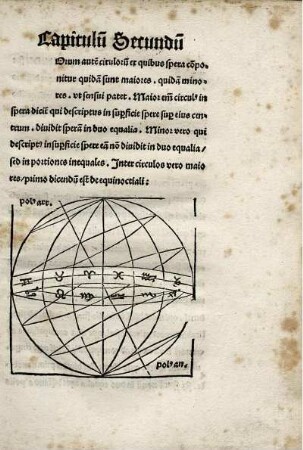 Capitulũ Secundũ
Orum autẽ circulorũ ex quibus spera cõpo
nitur quidã sunt maiores. quidã mino⸗
res. vt sensui patet. Maior em̃ circul⁹ in
spera dicit̃ qui descriptus in supficie spere sup eius cen
trum. diuidit sperã in duo equalia. Minor vero qui
descript⁹ in supficie spere eã nõ diuidit in duo equalia/
sed in portiones inequales. Inter circulos vero maio
res/primo dicendum est de equinoctiali:
pol⁹ arc.
♓ ♈ ♉
♍
pol⁹ an.